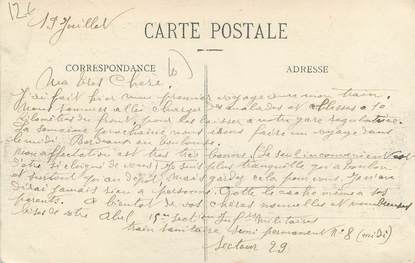 12 t
19 Juillet
CARTE POSTALE
CORRESPONDANCE
ADRESSE
Ma très Chère,
J'ai fait hier mon premier voyage avec mon train.
Nous sommes allés charger des malades et blessés à 10
kilomètres du front, pour les laisser à notre gare régulatrice.
La semaine prochaine nous irons faire un voyage dans
le midi. Bordeaux ou
mon affectation est très bonne. Le seul inconvénient c'est
d'être éloigné de vous. Je suis plus tranquille qu'à
et surtout qu'au dépôt, mais gardez cela pour vous. Je n'en
dirai jamais rien à personne. cache même à ses
parents. A bientôt de vos chères nouvelles et
bises de votre Abel, 15e sect. Infirmiers militaires
Train sanitaire semi permanent N° 8 (midi)
Secteur 29